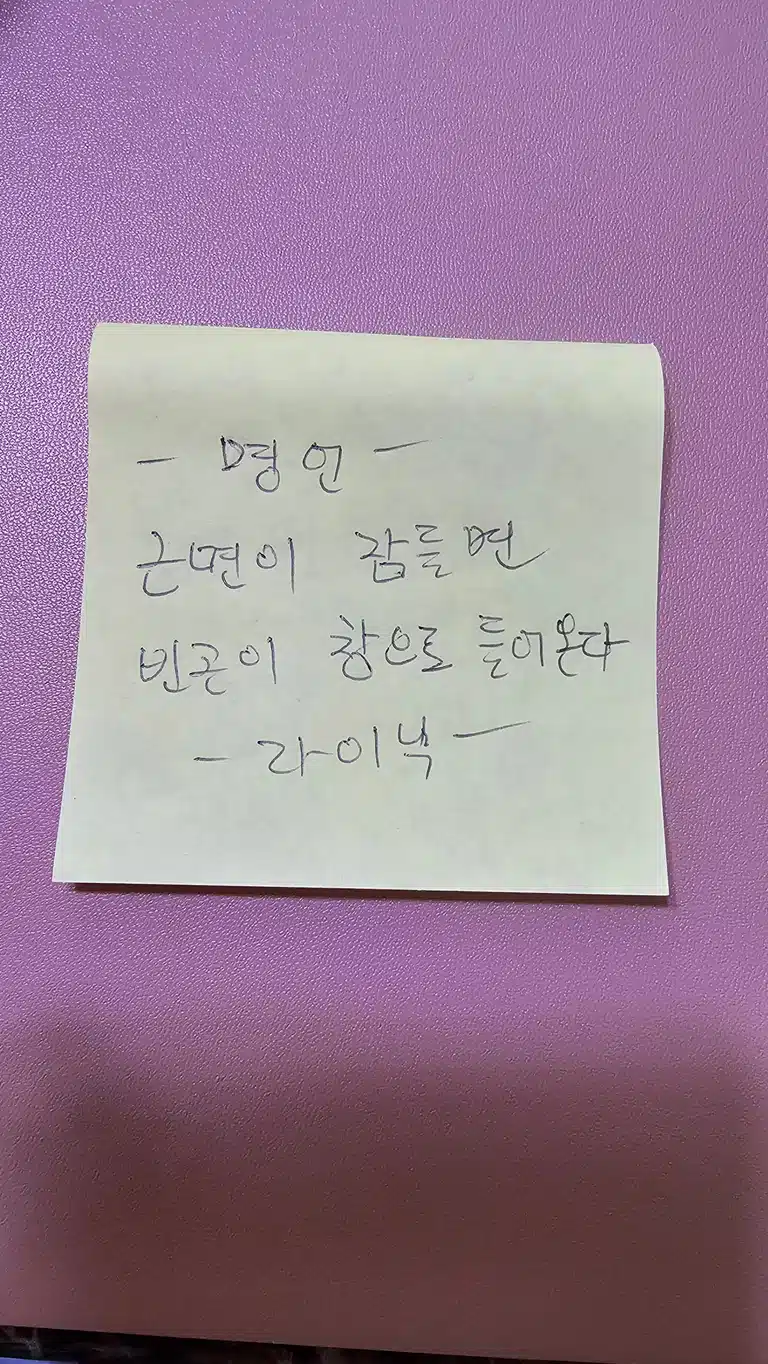 - 명언 -
근면이 잠들면
빈곤이 창으로 들어온다
- 라이닉 -